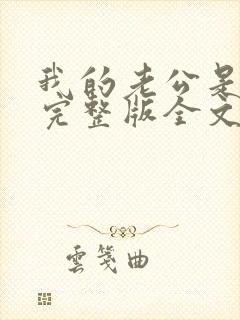 我的老公是
完整版全文
雲箋曲